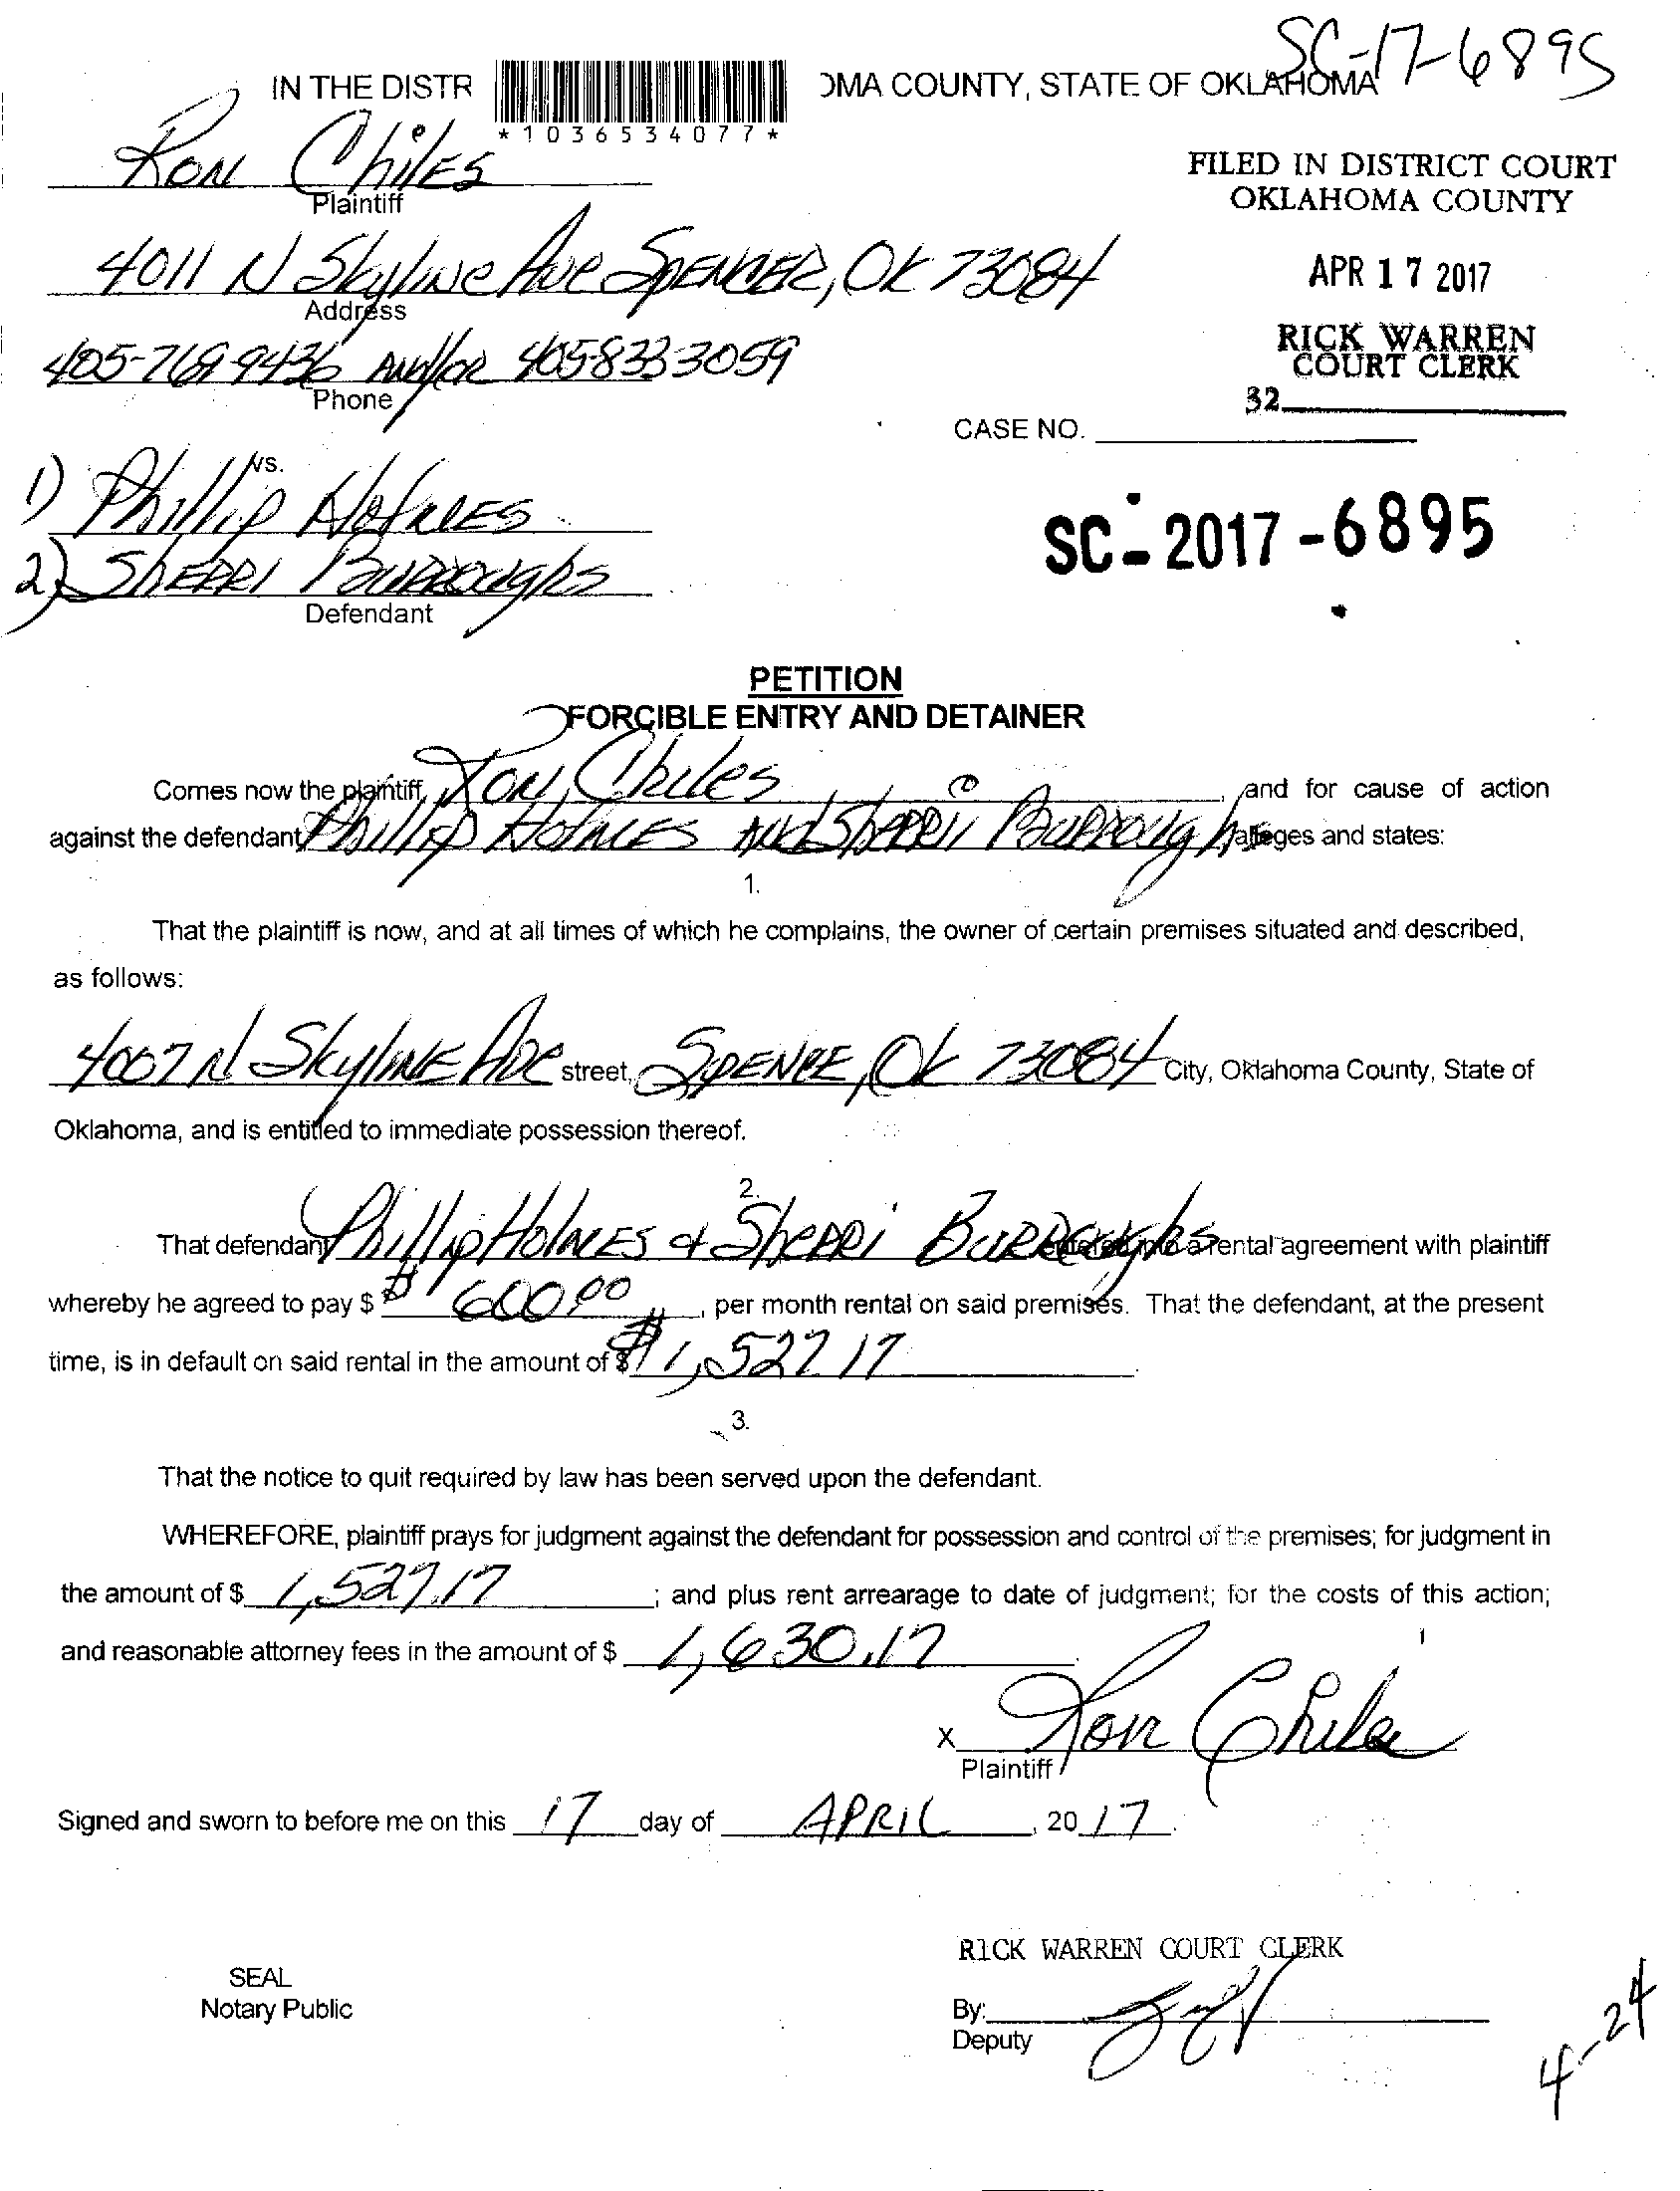 SC-17-6895
IN THE DISTR OMA COUNTY, STATE OF OKLAHOMA
*1036534077*
RON ChilES
Plaintiff
FILED IN DISTRICT COURT
OKLAHOMA COUNTY
4011 N Skyline Ave SPENCER, OK 73084
Address
APR 17 2017
RICK WARREN
COURT CLERK
405-769-9436 AND/OR 405 833 3059
Phone
32
CASE NO.
vs.
1) Phillip HolmES
2) ShERRI BURROughs
Defendant
SC-2017-6895
PETITION
FORCIBLE ENTRY AND DETAINER
Comes now the plaintiff, RON Chiles, and for cause of action
against the defendant Phillip HolmES AND ShERRi BURROughs alleges and states:
1.
That the plaintiff is now, and at all times of which he complains, the owner of certain premises situated and described,
as follows:
4007 N SkylINE Ave street, SPENCE, Ok 73084 City, Oklahoma County, State of
Oklahoma, and is entitled to immediate possession thereof.
2.
That defendant Phillip HolmES & ShERRi BURROughs entered into a rental agreement with plaintiff
whereby he agreed to pay $ $ 600.00, per month rental on said premises. That the defendant, at the present
time, is in default on said rental in the amount of $ $ 1,527.17.
3.
That the notice to quit required by law has been served upon the defendant.
WHEREFORE, plaintiff prays for judgment against the defendant for possession and control of the premises; for judgment in
the amount of $ 1,527.17; and plus rent arrearage to date of judgment; for the costs of this action;
and reasonable attorney fees in the amount of $ 1,630.17.
X Ron Chiles
Plaintiff
Signed and sworn to before me on this 17 day of APRIL, 20 17.
RICK WARREN COURT CLERK
SEAL
Notary Public
By:
Deputy
4-24